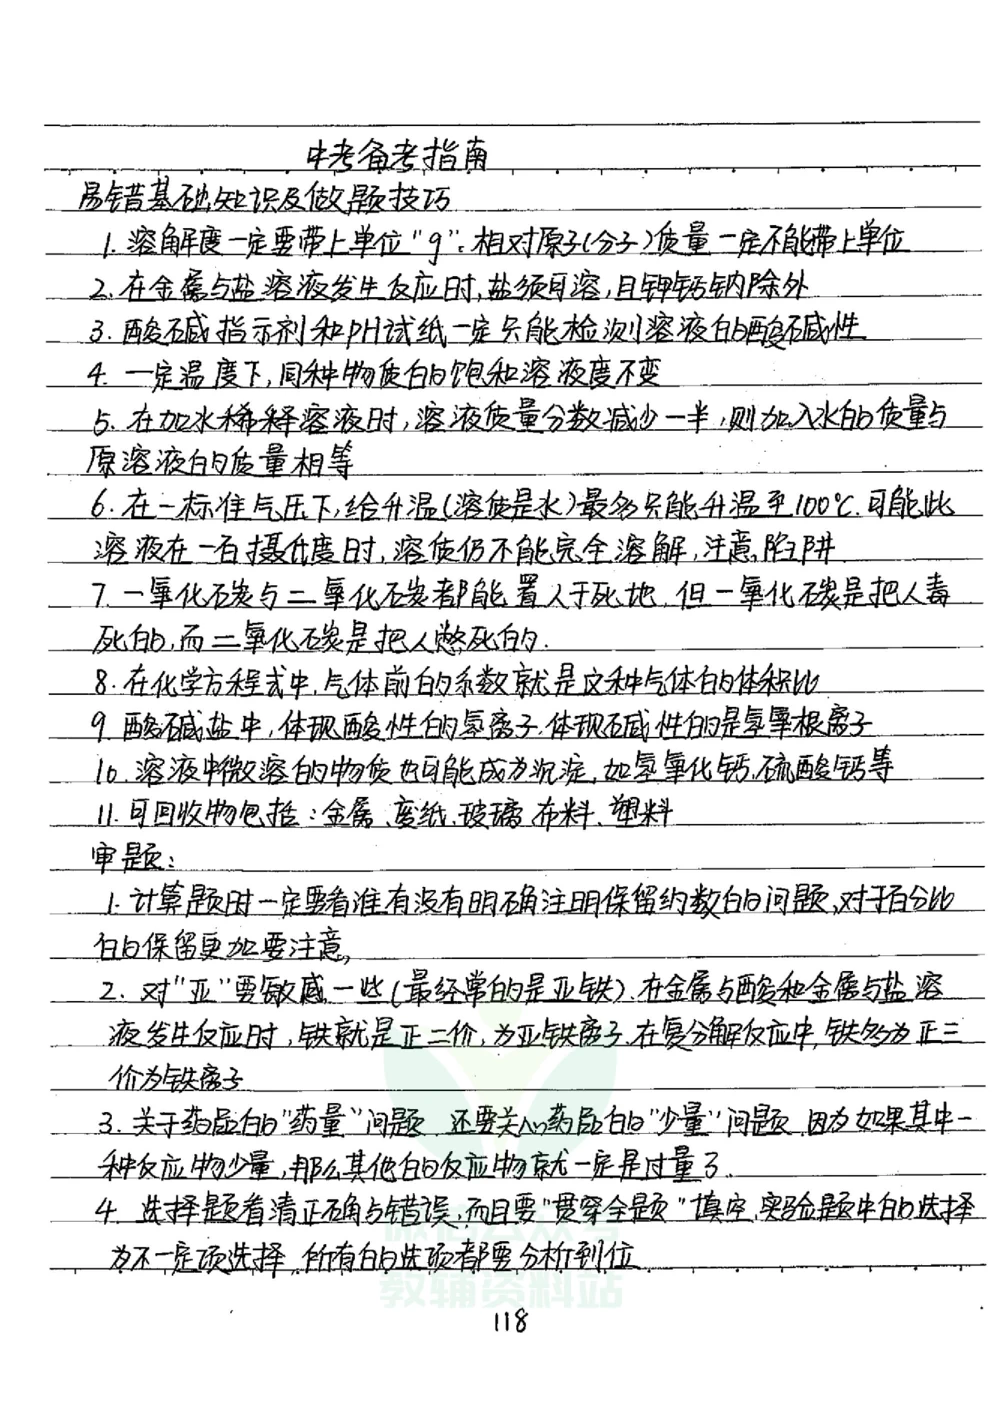 中考备考指南
易错基础知识及做题技巧
1. 溶解度一定要带上单位"g"; 相对原子(分子)质量一定不能带上单位
2. 在金属与盐溶液发生反应时, 盐须可溶, 且钾钙钠除外
3. 酸碱指示剂和pH试纸一定只能检测溶液的酸碱性
4. 一定温度下, 同种物质的饱和溶液度不变
5. 在加水稀释溶液时, 溶液质量分数减少一半, 则加入水的质量与
原溶液的质量相等
6. 在一标准气压下, 给升温(溶质是水)最多只能升温至100℃. 可能此
溶液在一百摄氏度时, 溶质仍不能完全溶解, 注意陷阱
7. 一氧化碳与二氧化碳都能置人于死地, 但一氧化碳是把人毒
死的, 而二氧化碳是把人憋死的.
8. 在化学方程式中, 气体前的系数就是这种气体的体积比
9. 酸碱盐中, 体现酸性的氢离子, 体现碱性的是氢氧根离子
10. 溶液中微溶的物质也可能成为沉淀, 如氢氧化钙、硫酸钙等
11. 可回收物包括: 金属、废纸、玻璃、布料、塑料
审题:
1. 计算题时一定要看准有没有明确注明保留约数的问题, 对于百分比
的保留更加要注意,
2. 对"亚"要敏感一些(最经常的是亚铁). 在金属与酸和金属与盐溶
液发生反应时, 铁就是正二价, 为亚铁离子. 在复分解反应中, 铁多为正三
价为铁离子
3. 关于药品的"药量"问题 还要关心药品的"少量"问题, 因为如果其中一
种反应物少量, 那么其他的反应物就一定是过量了.
4. 选择题看清正确与错误, 而且要"贯穿全题" 填空, 实验题中的选择
为不一定项选择, 所有的选项都要分析到位
微信公众号
教辅资料站
118